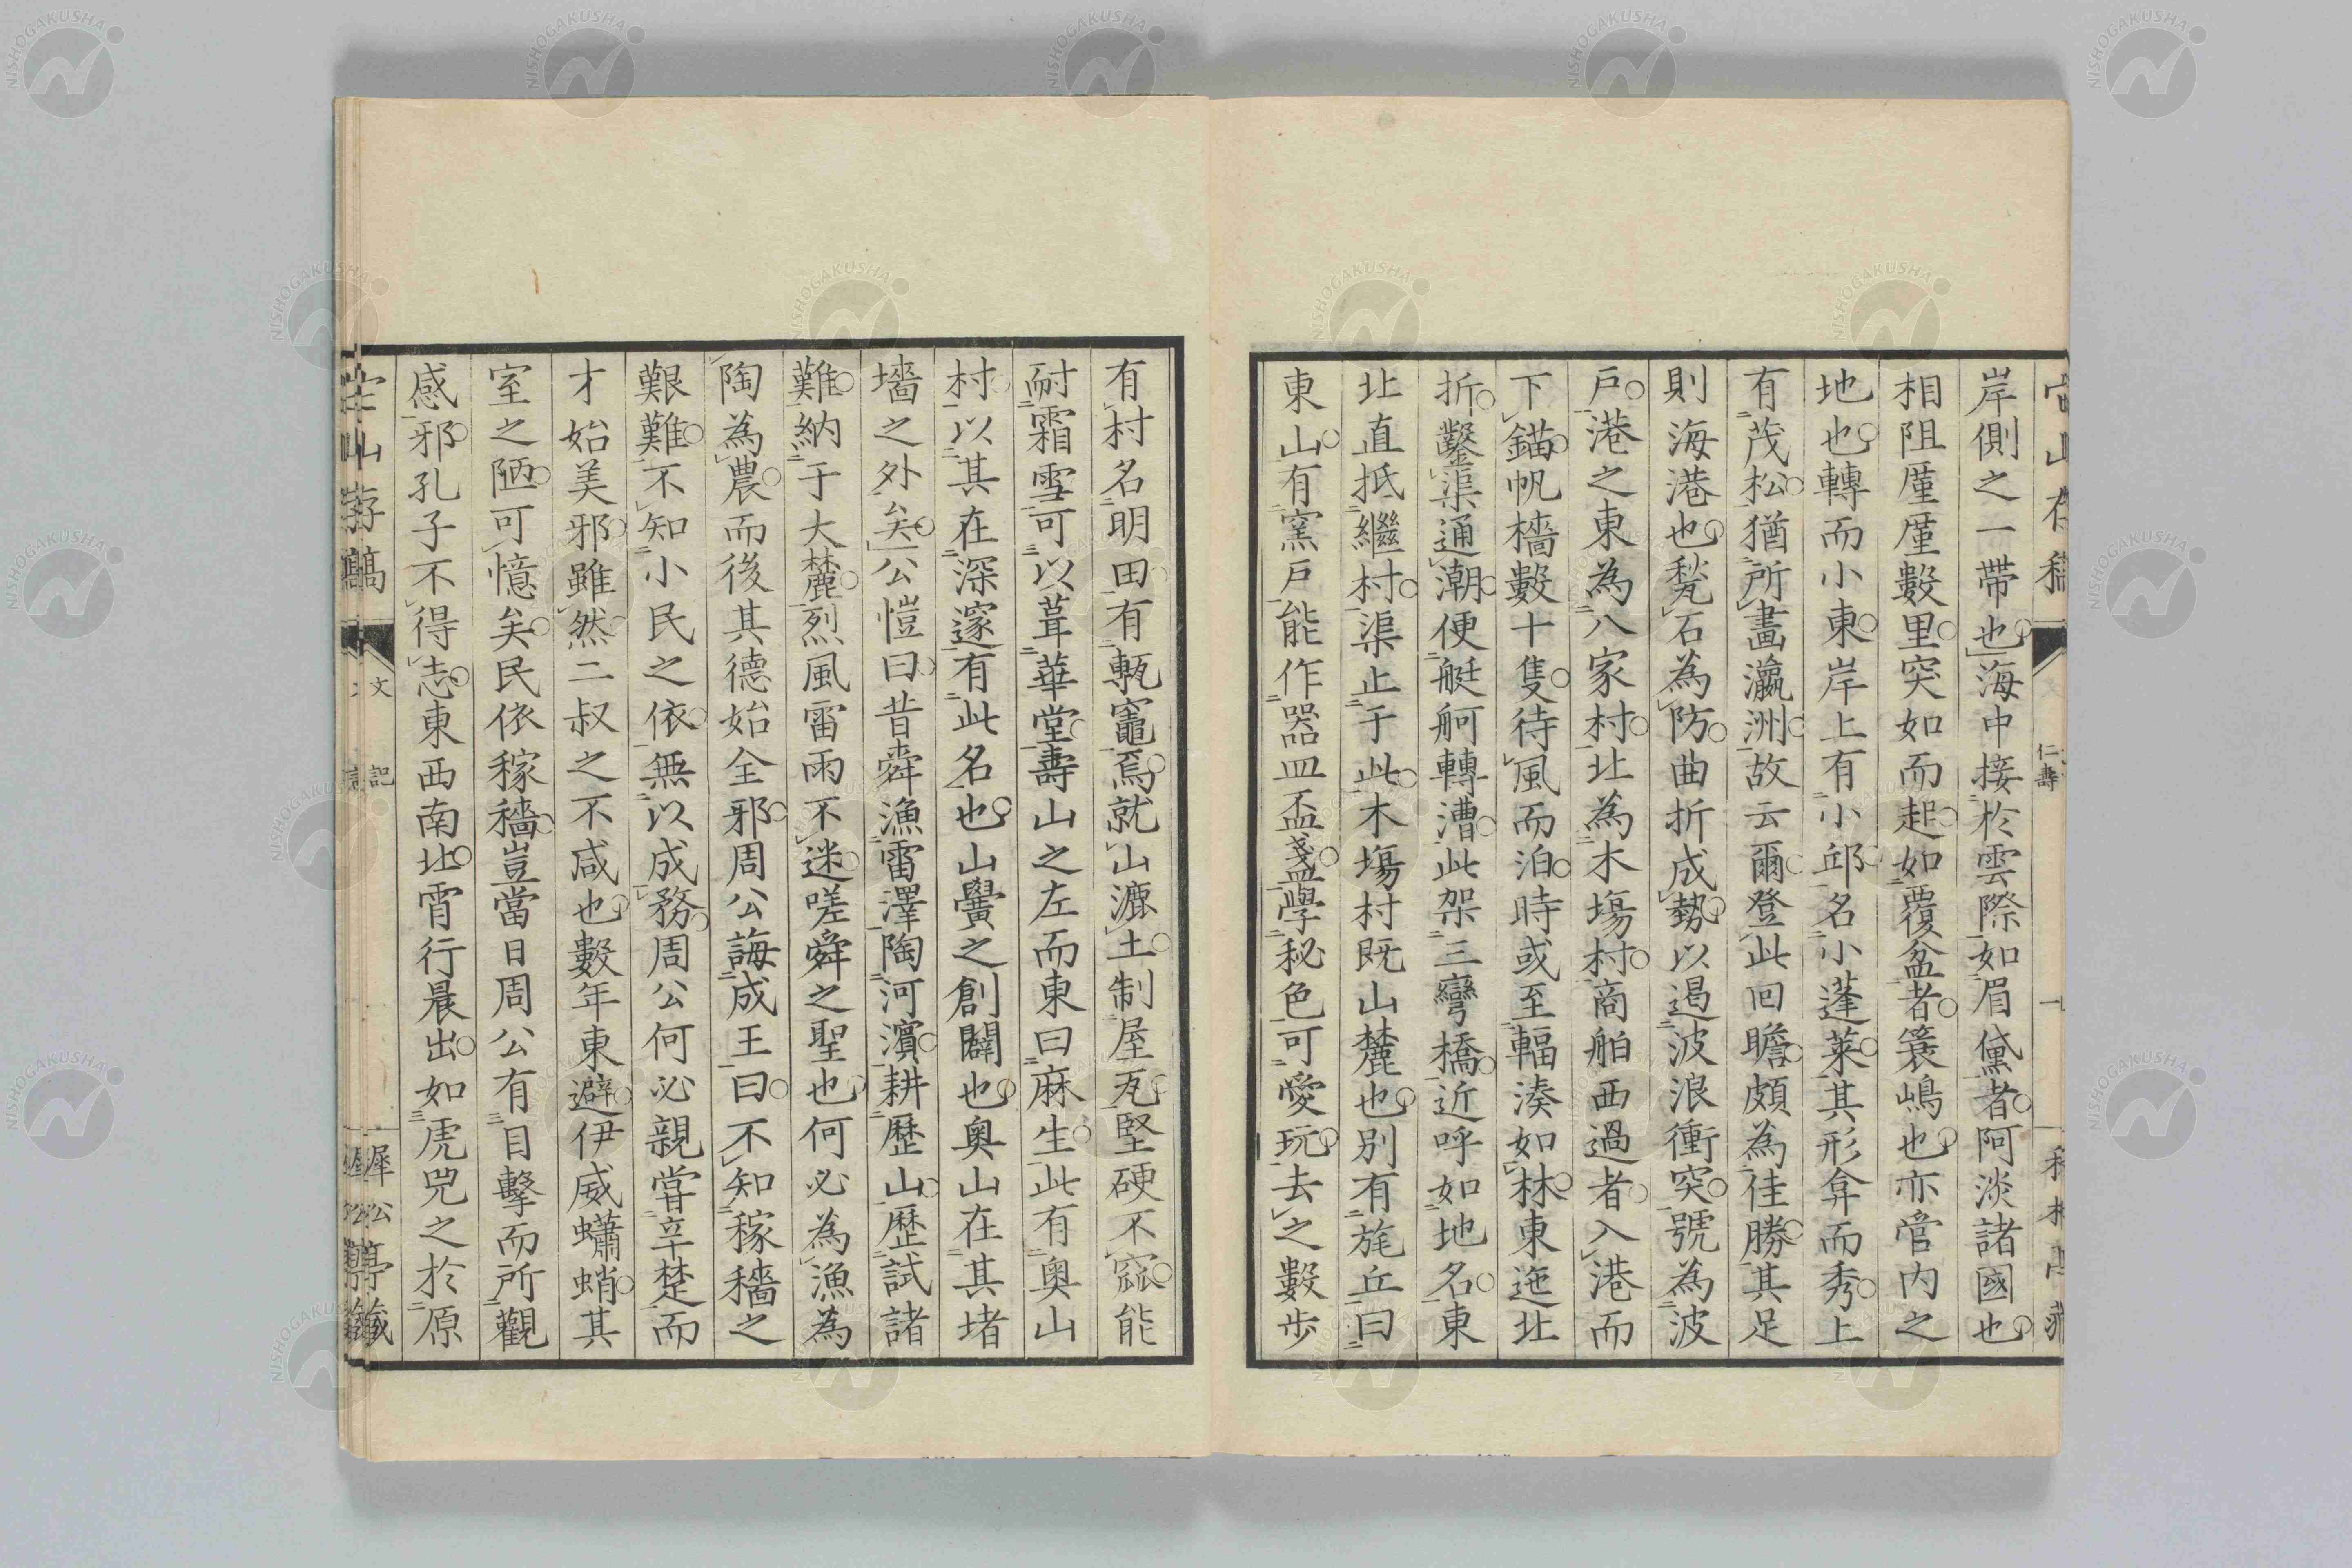 岸側之一帶也海中接於雲際如眉黛者阿淡諸國也
相阻厪厪數里突如而起如覆盆者簔嶋也亦管内之
地也轉而小東岸上有小邱名小蓬萊其形弇而秀上
有茂松猶所畫瀛洲故云爾登此回瞻頗為佳勝其足
則海港也甃石為防曲折成勢以遏波浪衝突號為波
戸港之東為八家村北為木塲村商舶西過者入港而
下錨帆檣數十隻待風而泊時或至輻湊如林東迤北
折鑿渠通潮便艇舸轉漕此架三彎橋近呼如地名東
北直抵繼村渠止于此木塲村既山麓也別有旄丘曰
東山有窯戸能作器皿盃盞學秘色可愛玩去之數步
有村名明田有甎竈焉就山漉土制屋瓦堅硬不窳能
耐霜雪可以葺華堂壽山之左而東曰麻生此有奧山
村以其在深邃有此名也山黌之創闢也奧山在其堵
墻之外矣公愷曰昔舜漁雷澤陶河濱耕歷山歷試諸
難納于大麓烈風雷雨不迷嗟舜之聖也何必為漁為
陶為農而後其德始全邪周公誨成王曰不知稼穡之
艱難不知小民之依無以成務周公何必親嘗辛楚而
才始美邪雖然二叔之不咸也數年東避伊威蠨蛸其
室之陋可憶矣民依稼穡豈當日周公有目擊而所觀
感邪孔子不得志東西南北宵行晨出如虎兕之於原
文
記
仁壽